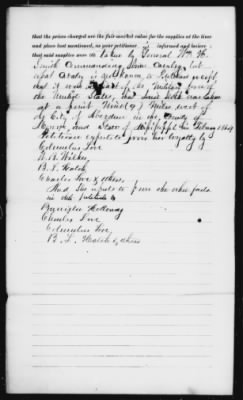 that the prices charged are the fair market value for the supplies at the time
and place last mentioned, as your petitioner informed and believe
that said supplies were taken by General Wm S.
Smith Commanding Some Cavalry but
what Brady is unknown a Petitioner except
that it was a part of the Military force of
the United States, and said stock was taken
at a point Nine (9) Miles west of
the City of Aberdeen in the County of
Monroe, and State of Mississippi in February 1864
Petitioner expects to prove her loyalty by
Columbus Love
B. L. Hatch
Charles Love & others
And She expects to prove the other facts
in this petition by
Holloway
Charles Love
Columbus Love
B. L. Hatch & others